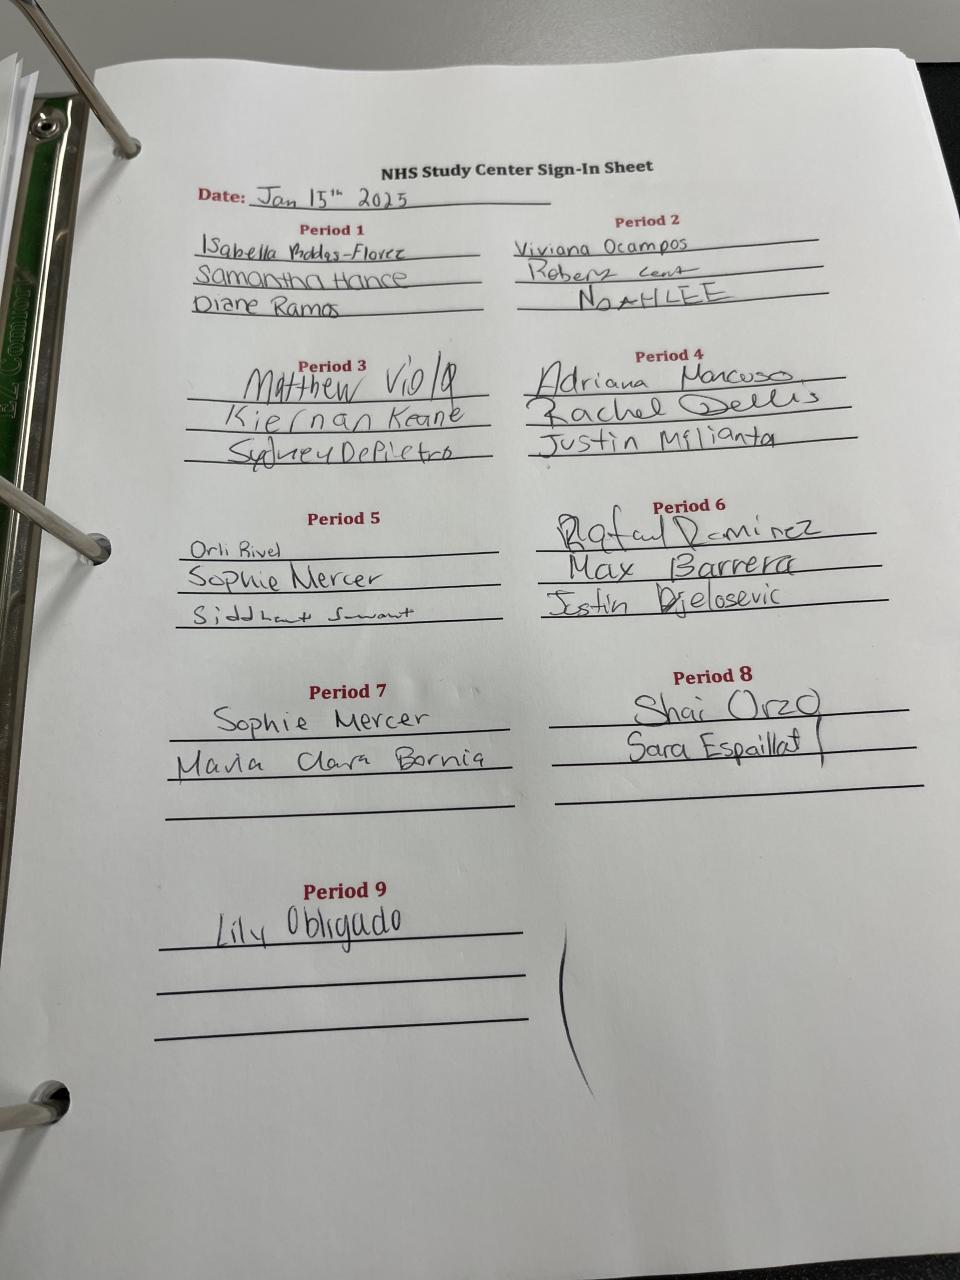 NHS Study Center Sign-In Sheet
Date: Jan 15th 2025
Period 1
Isabella
Samantha Hance
Diane Ramos
Period 2
Viviana Ocampos
Robert
NOAH LEE
Period 3
Matthew Viola
Kiernan Keane
Sydney DePietro
Period 4
Adriana Mancuso
Rachel Dellis
Justin Milianta
Period 5
Orli Rivel
Sophie Mercer
Siddhant Sawant
Period 6
Rafael Ramirez
Max Barrera
Justin Djelosevic
Period 7
Sophie Mercer
Maria Clara Bornia
Period 8
Shai Orzo
Sara Espaillat
Period 9
Lily Obligado